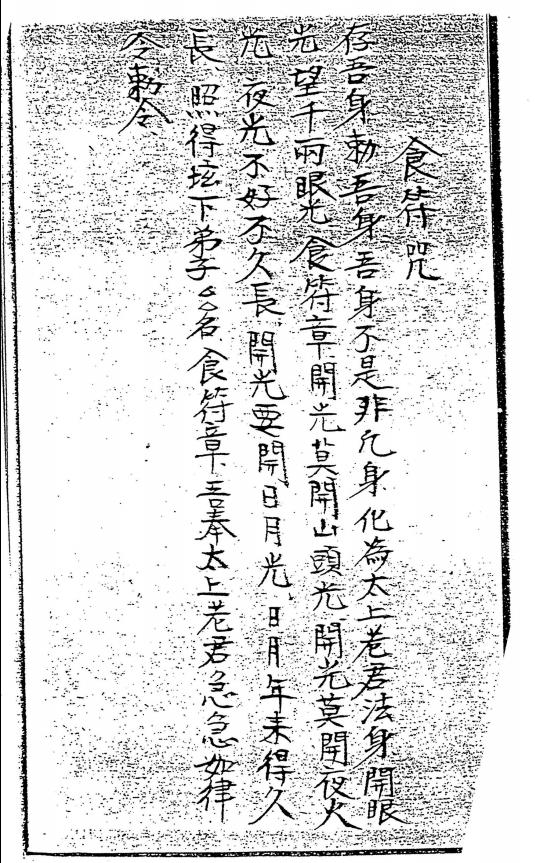 食符咒
存吾身勅吾身吾身不是非凡身化為太上老君法身開眼
光望千兩眼光食符章開光莫開山頭光開光莫開夜火
光夜光不好不久長開光要開日月光日月年來得久
長照得坛下弟子厶名食符章吾奉太上老君急急如律
令勅令